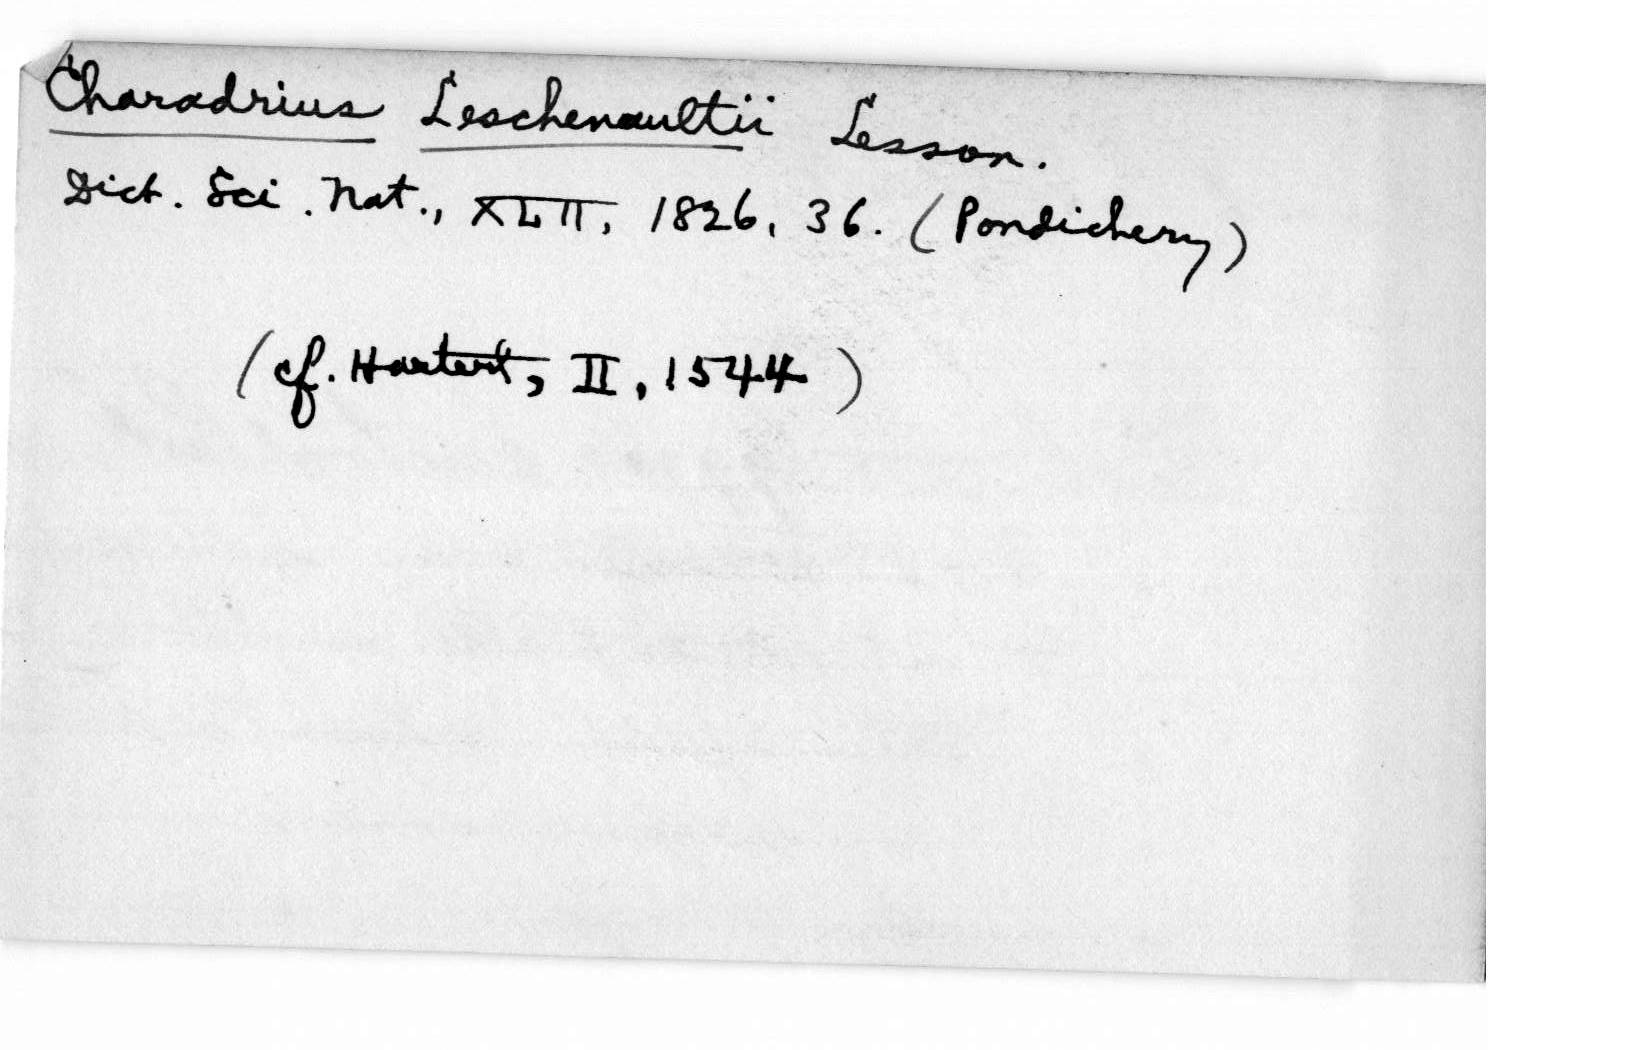 Charadrius Leschenaultii Lesson.
Dict. Sci. Nat., XLII, 1826, 36. (Pondichery)
(cf. Hartert, II, 1544)